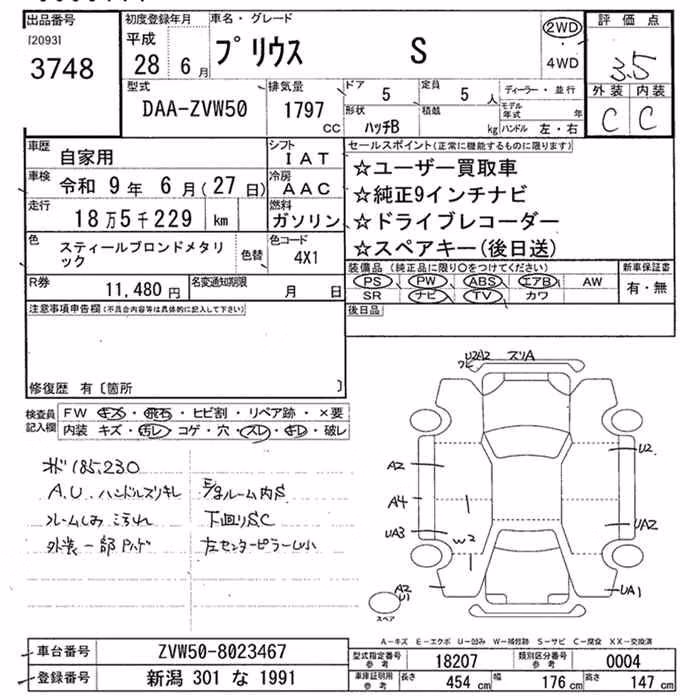 出品番号
[2093]
3748
初度登録年月
平成
28 6月
車名・グレード
プリウス S
2WD
4WD
評価点
3.5
外装 内装
C C
型式
DAA-ZVW50
排気量
1797
CC
ドア
5
定員
5 人
形状
ハッチB
積載
kg
ディーラー・並行
モデル年式 年
ハンドル 左・右
車歴
自家用
シフト
IAT
車検
令和 9年 6月(27日)
冷房
AAC
走行
18万5千229 km
燃料
ガソリン
色
スティールブロンドメタリック
色替
色コード
4X1
R券
11,480円
名変通知期限
月 日
セールスポイント(正常に機能するものに限ります)
☆ユーザー買取車
☆純正9インチナビ
☆ドライブレコーダー
☆スペアキー(後日送)
装備品(純正品に限り○をつけてください)
PS PW ABS エアB AW
SR ナビ TV カワ
新車保証書
有・無
後日品
注意事項申告欄(不具合内容等は具体的に記入して下さい)
修復歴 有〔箇所 〕
検査員記入欄
FW キズ・飛石・ヒビ割・リペア跡・×要
内装 キズ・汚レ・コゲ・穴・スレ・キレ・破レ
メーター 185,230
A.U. ハンドルスリキレ
外装一部
ルーム内S
下回りSC
左センターピラーU小
U2A2
スリA
A2
A4
UA3
W2
U2
UA2
UA1
A2
U1
スペア
A-キズ E-エクボ U-凹み W-補修跡 S-サビ C-腐食 XX-交換済
車台番号
ZVW50-8023467
登録番号
新潟 301 な 1991
型式指定番号
参考
18207
類別区分番号
参考
0004
車庫証明用
参考
長さ
454 cm
幅
176 cm
高さ
147 cm